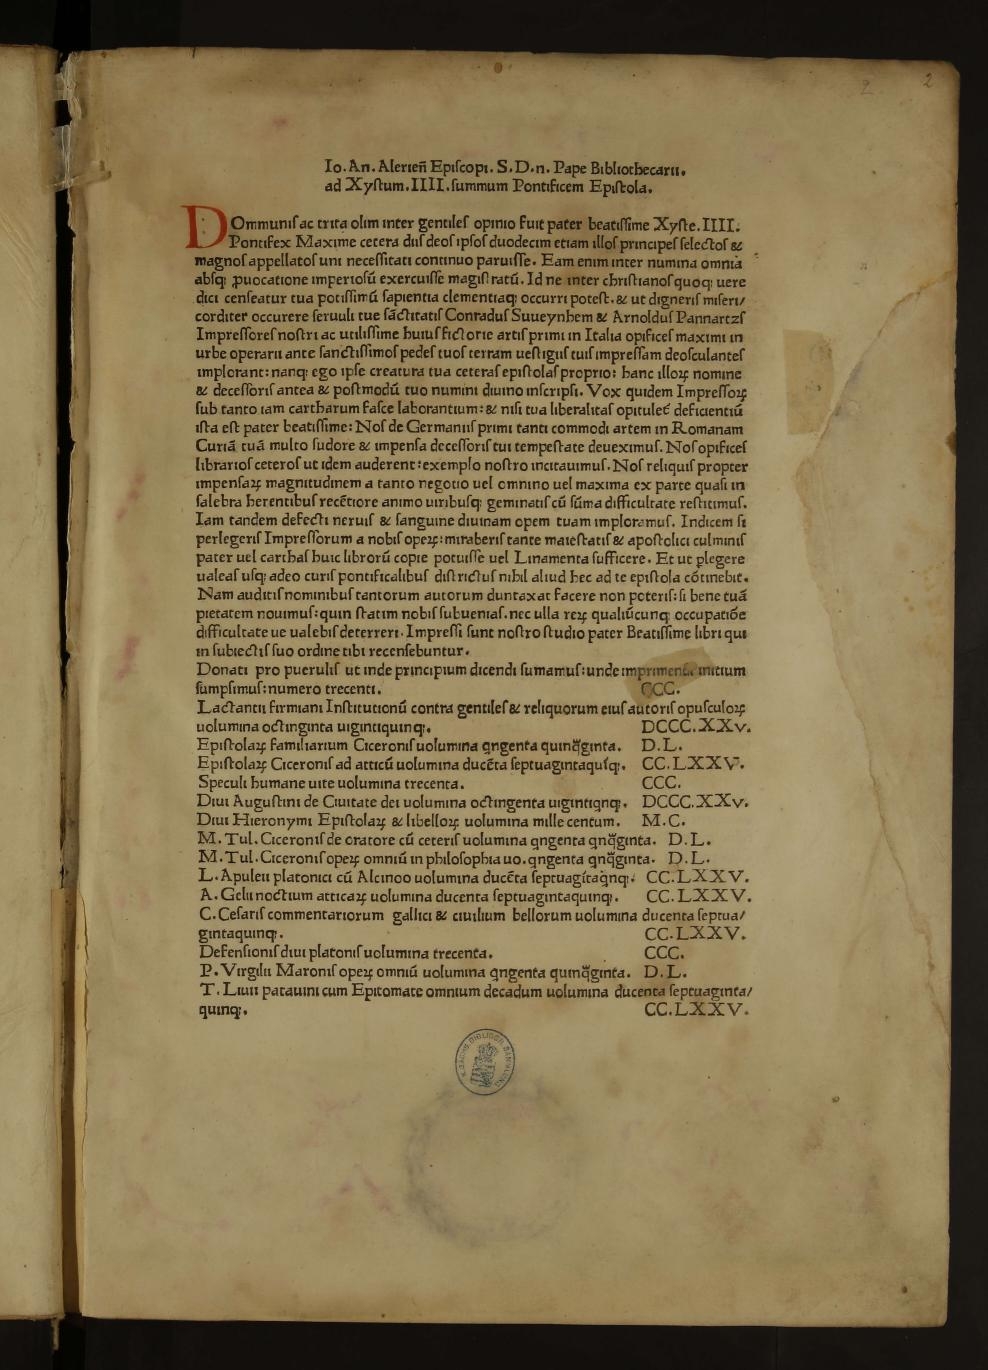 2 2
Io.An.Alerieñ Epiſcopi.S.D.n.Pape Bibliothecarii.
ad Xyſtum.IIII.ſummum Pontificem Epiſtola.
DOmmuniſ ac trita olim inter gentileſ opinio fuit pater beatiſſime Xyſte.IIII.
Pontifex Maxime cetera diiſ deoſ ipſoſ duodecim etiam illoſ principeſ ſelectoſ &
magnoſ appellatoſ uni neceſſitati continuo paruiſſe. Eam enim inter numina omnia
abſqꝫ ꝓuocatione imperioſū exercuiſſe magiſtratū. Id ne inter chriſtianoſ quoqꝫ uere
dici cenſeatur tua potiſſimū ſapientia clementiaqꝫ occurri poteſt.& ut digneriſ miſeri/
corditer occurere ſeruuli tue ſāctitatiſ Conraduſ Suueynhem & Arnolduſ Pannartzſ
Impreſſoreſ noſtri ac utiliſſime huiuſ fictorie artiſ primi in Italia opificeſ maximi in
urbe operarii ante ſanctiſſimoſ pedeſ tuoſ terram ueſtigiiſ tuiſ impreſſam deoſculanteſ
implorant:nanqꝫ ego ipſe creatura tua ceteraſ epiſtolaſ proprio: hanc illoꝝ nomine
& deceſſoriſ antea & poſtmodū tuo numini diuino inſcripſi. Vox quidem Impreſſoꝝ
ſub tanto iam cartharum faſce laborantium:& niſi tua liberalitaſ opituleť deficientiū
iſta eſt pater beatiſſime: Noſ de Germaniiſ primi tanti commodi artem in Romanam
Curiā tuā multo ſudore & impenſa deceſſoriſ tui tempeſtate deueximuſ. Noſ opificeſ
librarioſ ceteroſ ut idem auderent:exemplo noſtro incitauimuſ. Noſ reliquiſ propter
impenſaꝝ magnitudinem a tanto negotio uel omnino uel maxima ex parte quaſi in
ſalebra herentibuſ recētiore animo uiribuſqꝫ geminatiſ cū ſūma difficultate reſtitimuſ.
Iam tandem defecti neruiſ & ſanguine diuinam opem tuam imploramuſ. Indicem ſi
perlegeriſ Impreſſorum a nobiſ opeꝝ:miraberiſ tante maieſtatiſ & apoſtolici culminiſ
pater uel carthaſ huic librorū copie potuiſſe uel Linamenta ſufficere. Et ut ꝑlegere
ualeaſ uſqꝫ adeo curiſ pontificalibuſ diſtrictuſ nihil aliud hec ad te epiſtola cōtinebit.
Nam auditiſ nominibuſ tantorum autorum duntaxat facere non poteriſ:ſi bene tuā
pietatem nouimuſ:quin ſtatim nobiſ ſubueniaſ.nec ulla reꝝ qualiūcunqꝫ occupatiōe
difficultate ue ualebiſ deterreri. Impreſſi ſunt noſtro ſtudio pater Beatiſſime libri qui
in ſubiectiſ ſuo ordine tibi recenſebuntur.
Donati pro pueruliſ ut inde principium dicendi ſumamuſ:unde imprimendi initium
ſumpſimuſ:numero trecenti. CCC.
Lactantii firmiani Inſtitutionū contra gentileſ & reliquorum eiuſ autoriſ opuſculoꝝ
uolumina octinginta uigintiquinqꝫ. DCCC.XXv.
Epiſtolaꝝ familiarium Ciceroniſ uolumina qngenta quinqᷓginta. D.L.
Epiſtolaꝝ Ciceroniſ ad atticū uolumina ducēta ſeptuagintaquīqꝫ. CC.LXXV.
Speculi humane uite uolumina trecenta. CCC.
Diui Auguſtini de Ciuitate dei uolumina octingenta uigintiqnqꝫ. DCCC.XXv.
Diui Hieronymi Epiſtolaꝝ & libelloꝝ uolumina mille centum. M.C.
M.Tul.Ciceroniſ de oratore cū ceteriſ uolumina qngenta qnqᷓginta. D.L.
M.Tul.Ciceroniſ opeꝝ omniū in philoſophia uo.qngenta qnqᷓginta. D.L.
L.Apuleii platonici cū Alcinoo uolumina ducēta ſeptuagītaqnqꝫ. CC.LXXV.
A.Gelii noctium atticaꝝ uolumina ducenta ſeptuagintaquinqꝫ. CC.LXXV.
C.Ceſariſ commentariorum gallici & ciuilium bellorum uolumina ducenta ſeptua/
gintaquinqꝫ. CC.LXXV.
Defenſioniſ diui platoniſ uolumina trecenta. CCC.
P.Virgilii Maroniſ opeꝝ omniū uolumina qngenta quinqᷓginta. D.L.
T.Liuii patauini cum Epitomate omnium decadum uolumina ducenta ſeptuaginta/
quinqꝫ. CC.LXXV.